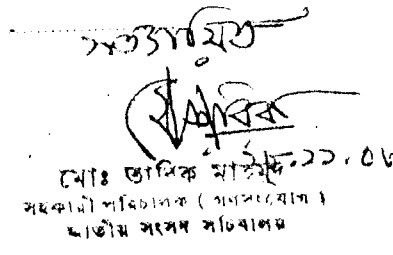 সত্যায়িত
মোঃ তারিক মাহমুদ
সহকারী পরিচালক ( গণসংযোগ )
জাতীয় সংসদ সচিবালয়